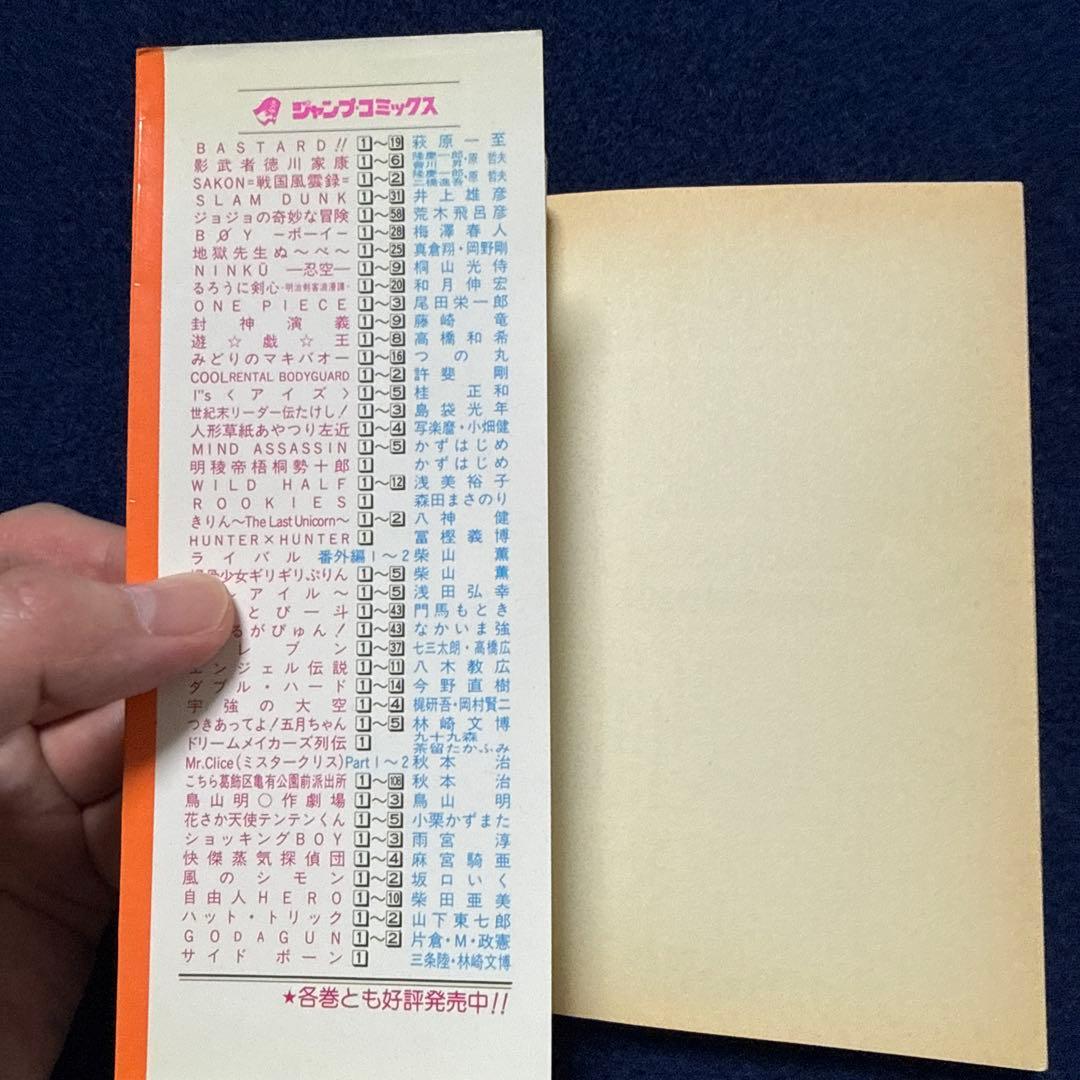 ジャンプ・コミックス
BASTARD!! 1〜19 萩原一至
影武者徳川家康 1〜6 隆慶一郎・原哲夫 會川昇
SAKON=戦国風雲録= 1〜2 隆慶一郎・原哲夫 二橋進吾
SLAM DUNK 1〜31 井上雄彦
ジョジョの奇妙な冒険 1〜58 荒木飛呂彦
BØY ―ボーイ― 1〜28 梅澤春人
地獄先生ぬ〜べ〜 1〜25 真倉翔・岡野剛
NINKŪ ―忍空― 1〜9 桐山光侍
るろうに剣心-明治剣客浪漫譚- 1〜20 和月伸宏
ONE PIECE 1〜3 尾田栄一郎
封神演義 1〜9 藤崎竜
遊☆戯☆王 1〜8 高橋和希
みどりのマキバオー 1〜16 つの丸
COOL RENTAL BODYGUARD 1〜2 許斐剛
I"s〈アイズ〉 1〜5 桂正和
世紀末リーダー伝たけし! 1〜3 島袋光年
人形草紙あやつり左近 1〜4 写楽麿・小畑健
MIND ASSASSIN 1〜5 かずはじめ
明稜帝梧桐勢十郎 1 かずはじめ
WILD HALF 1〜12 浅美裕子
ROOKIES 1 森田まさのり
きりん〜The Last Unicorn〜 1〜2 八神健
HUNTER×HUNTER 1 冨樫義博
ライバル 番外編1〜2 柴山薫
少女ギリギリぷりん 1〜5 柴山薫
アイル〜 1〜5 浅田弘幸
とび一斗 1〜43 門馬もとき
るがぴゅん! 1〜43 なかいま強
レブン 1〜37 七三太朗・高橋広
エンジェル伝説 1〜11 八木教広
ダブル・ハード 1〜14 今野直樹
宇強の大空 1〜4 梶研吾・岡村賢二
つきあってよ!五月ちゃん 1〜5 林崎文博
ドリームメイカーズ列伝 1 九十九森 茶留たかふみ
Mr.Clice(ミスタークリス)Part 1〜2 秋本治
こちら葛飾区亀有公園前派出所 1〜108 秋本治
鳥山明○作劇場 1〜3 鳥山明
花さか天使テンテンくん 1〜5 小栗かずまた
ショッキングBOY 1〜3 雨宮淳
快傑蒸気探偵団 1〜4 麻宮騎亜
風のシモン 1〜2 坂口いく
自由人HERO 1〜10 柴田亜美
ハット・トリック 1〜2 山下東七郎
GODAGUN 1〜2 片倉・M・政憲
サイドボーン 1 三条陸・林崎文博
★各巻とも好評発売中!!